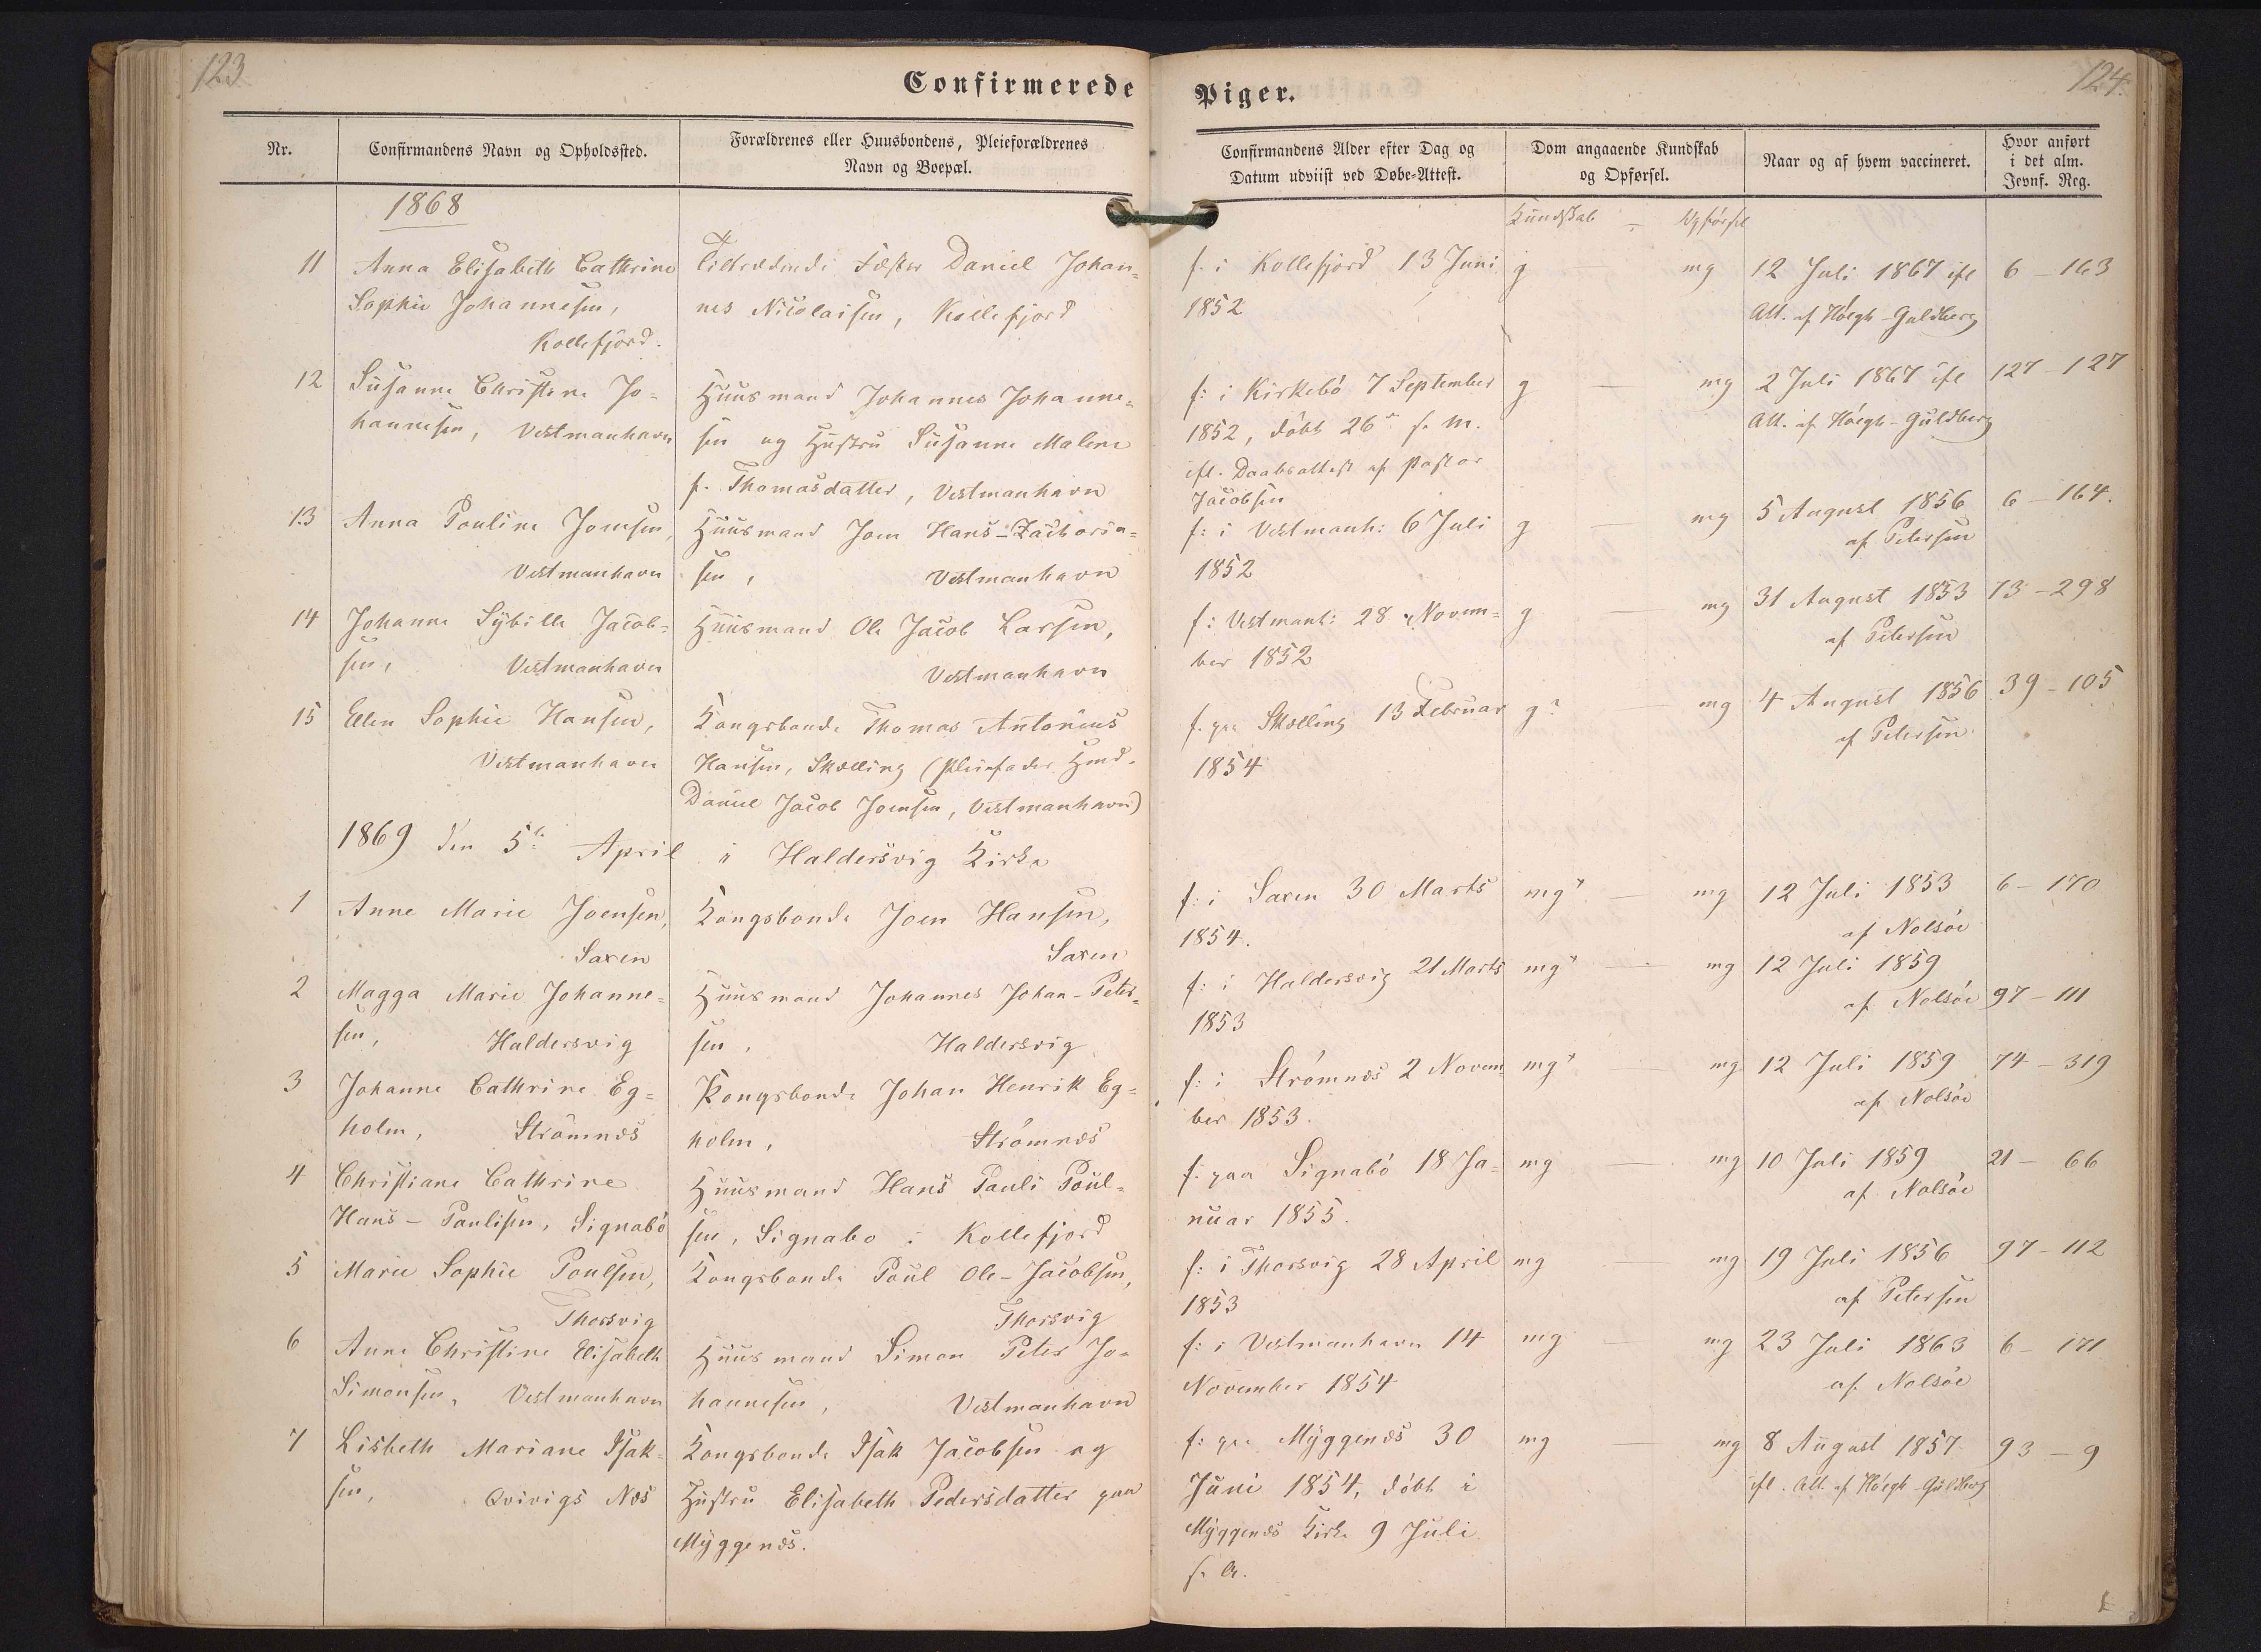 123
124.
Confirmerede Piger.
Nr.
Confirmandens Navn og Opholdssted.
Forældrenes eller Huusbondens, Pleieforældrenes
Navn og Boepæl.
Confirmandens Alder efter Dag og
Datum udviist ved Døbe-Attest.
Dom angaaende Kundskab
og Opførsel.
Naar og af hvem vaccineret.
Hvor anført
i det alm.
Jevnf. Reg.
1868
Kundskab - Opførsel
11 Anna Elisabeth Cathrine
Sophie Johannesen,
Kollefjord.
Fæster Daniel Johan=
nes Nicolaisen, Kollefjord
f. i Kollefjord 13 Juni
1852
g mg
12 Juli 1867 ifl
Att. af Høegh-Guldberg
6 - 163
12 Susanne Christine Jo=
hannesen, Vestmanhavn
Huusmand Johannes Johanne=
sen og Hustru Susanne Malene
f. Thomasdatter, Vestmanhavn
f: i Kirkebø 7 September
1852, døbt 26 s. M.
ifl. Daabsattest af Pastor
Jacobsen
g — mg
2 Juli 1867 ifl
Att. af Høegh-Guldberg
127 - 127
13 Anna Pauline Joensen,
Vestmanhavn
Huusmand Joen Hans-Zachoria=
sen, Vestmanhavn
f: i Vestmanh: 6 Juli
1852
g — mg
5 August 1856
af Petersen
6 - 164.
14 Johanne Sybille Jacob=
sen, Vestmanhavn
Huusmand Ole Jacob Larsen,
Vestmanhavn
f: Vestmanh: 28 Novem=
ber 1852
g — mg
31 August 1853
af Petersen
73 - 298
15 Ellen Sophie Hansen,
Vestmanhavn
Kongsbonde Thomas Antonius
Hansen, Skælling (Pleiefader Hmd.
Daniel Jacob Joensen, Vestmanhavn)
f. paa Skælling 13 Februar
1854
g? — mg
4 August 1856
af Petersen
39 - 105
1869 den 5te April i Haldersvig Kirke
1 Anne Marie Joensen,
Saxen
Kongsbonde Joen Hansen,
Saxen
f: i Saxen 30 Marts
1854.
mg+ — mg
12 Juli 1853
af Nolsøe
6 - 170
2 Magga Marie Johanne=
sen, Haldersvig
Huusmand Johannes Johan-Peter=
sen, Haldersvig
f: i Haldersvig 21 Marts
1853
mg+ — mg
12 Juli 1859
af Nolsøe
97 - 111
3 Johanne Cathrine Eg=
holm, Strømnæs
Kongsbonde Johan Henrik Eg=
holm, Strømnæs
f: i Strømnæs 2 Novem=
ber 1853.
mg+ — mg
12 Juli 1859
af Nolsøe
74 - 319
4 Christiane Cathrine
Hans-Paulisen, Signabø
Huusmand Hans Pauli Poul=
sen, Signabo i Kollefjord
f. paa Signabø 18 Ja=
nuar 1855.
mg — mg
10 Juli 1859
af Nolsøe
21 - 66
5 Marie Sophie Poulsen,
Thorsvig
Kongsbonde Poul Ole-Jacobsen,
Thorsvig
f: i Thorsvig 28 April
1853
mg — mg
19 Juli 1856
af Petersen
97 - 112
6 Anne Christine Elisabeth
Simonsen, Vestmanhavn
Huusmand Simon Peter Jo=
hannesen, Vestmanhavn
f: i Vestmanhavn 14
November 1854
mg — mg
23 Juli 1863
af Nolsøe
6 - 171
7 Lisbeth Mariane Isak=
sen, Qvivigs Næs
Kongsbonde Isak Jacobsen og
Hustru Elisabeth Pedersdatter paa
Myggenæs.
f: paa Myggenæs 30
Juni 1854, døbt i
Myggenæs Kirke 9 Juli
s. A.
mg — mg
8 August 1857
ifl. Att. af Høegh-Guldberg
93 - 9